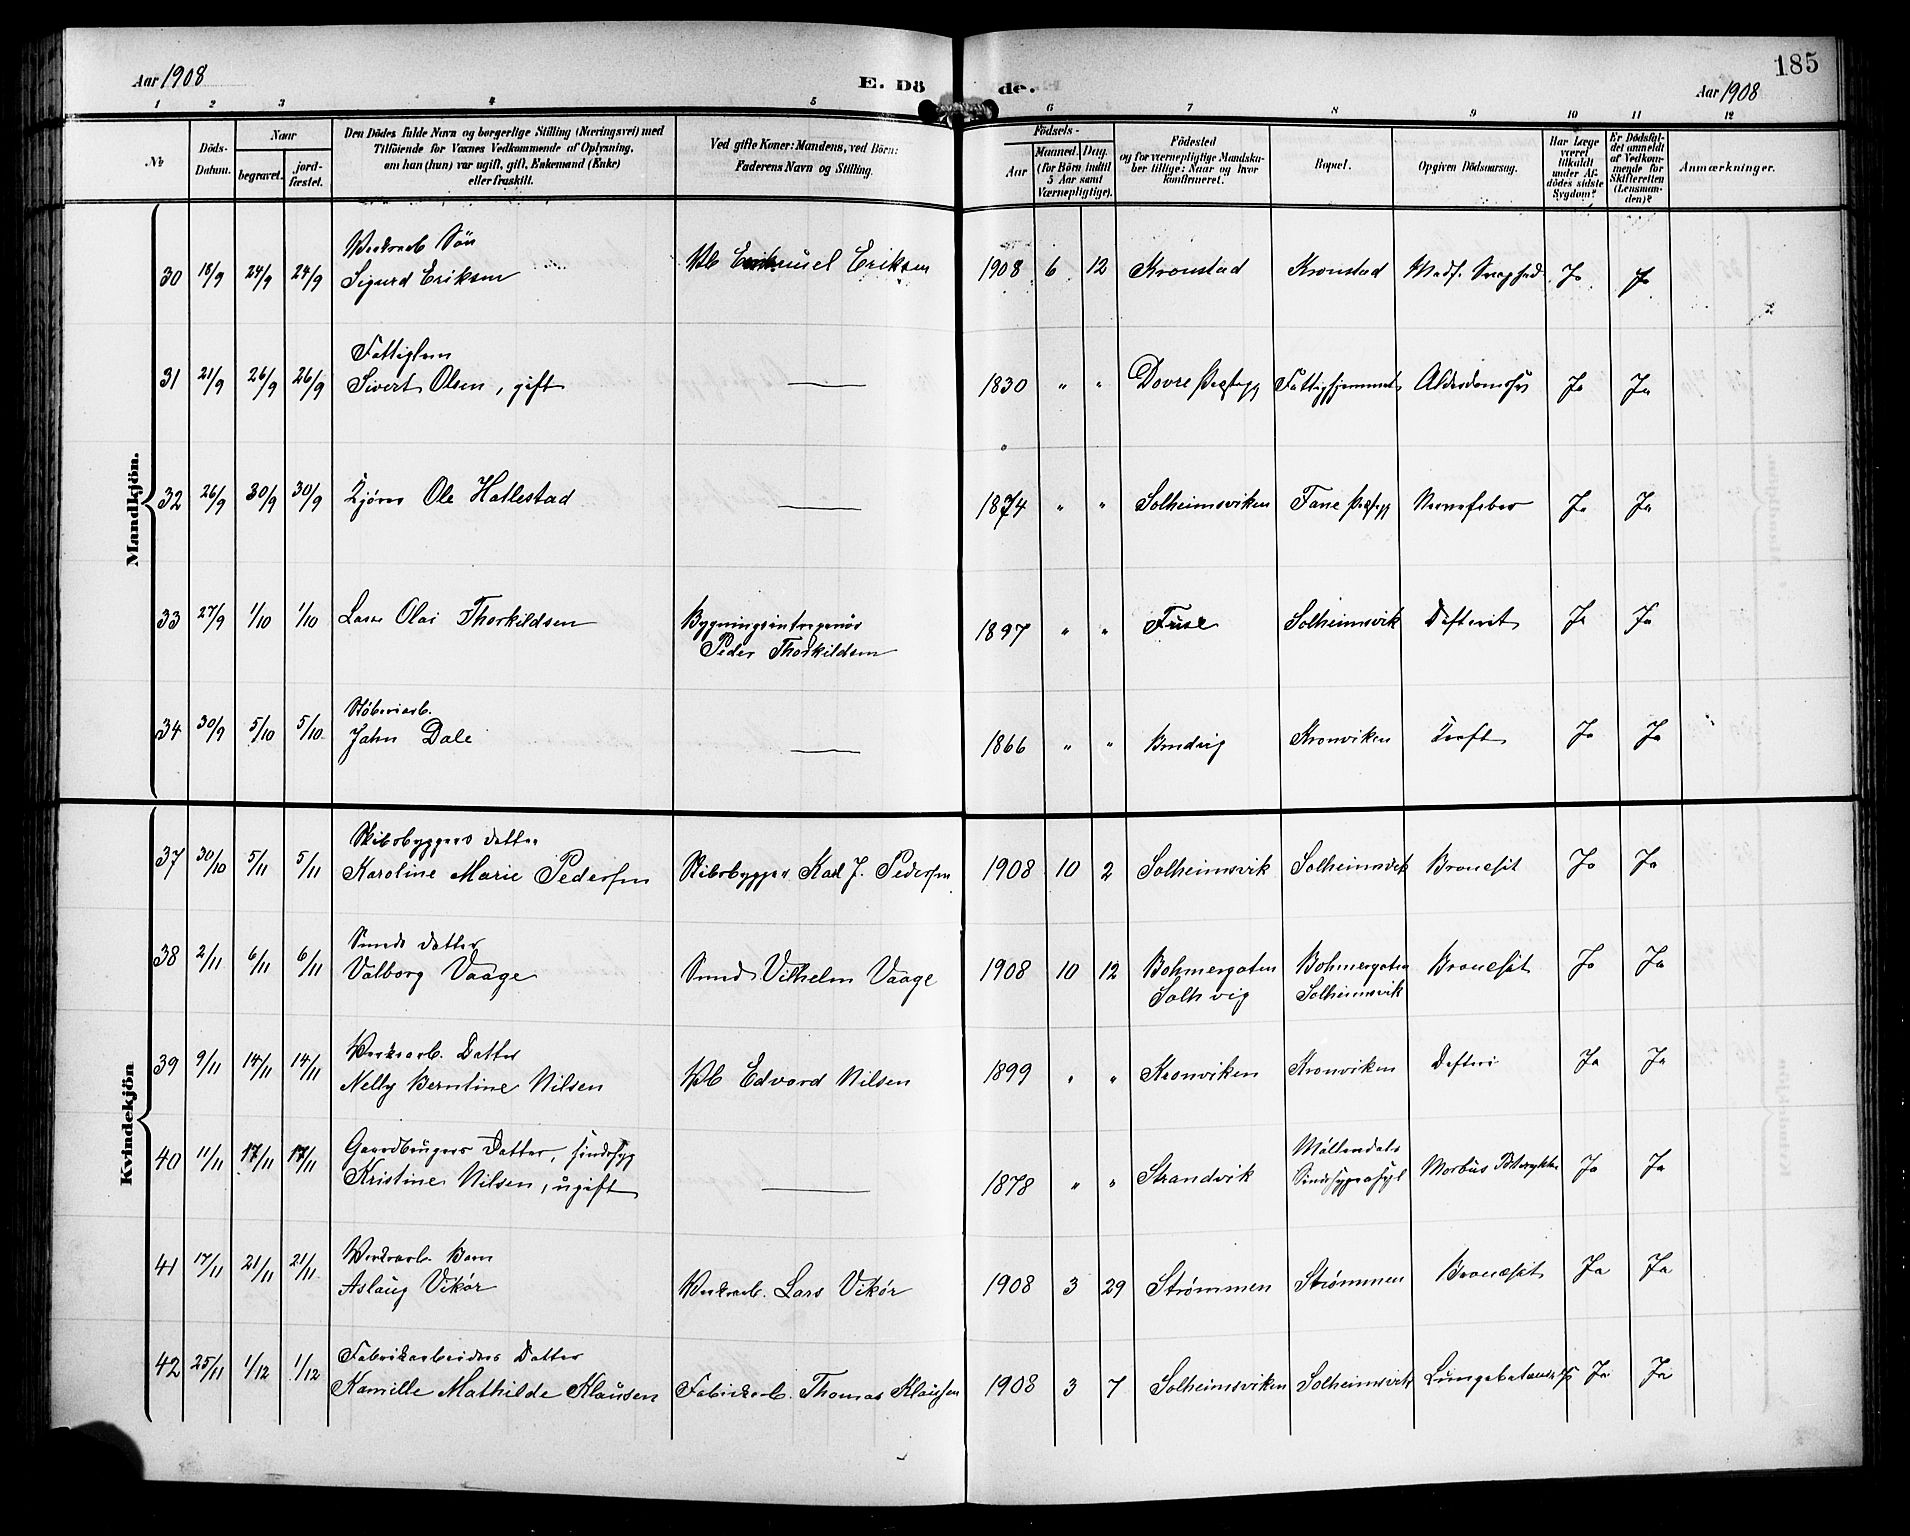 185
Aar 1908
E. Dö de.
Aar 1908
1 2 3 4 5 6 7 8 9 10 11 12
No
Döds-Datum.
Naar
begravet.
jord-fæstet.
Den Dödes fulde Navn og borgerlige Stilling (Næringsvei) med
Tilföiende for Voxnes Vedkommende af Oplysning,
om han (hun) var ugift, gift, Enkemand (Enke)
eller fraskilt.
Ved gifte Koner: Mandens, ved Börn:
Faderens Navn og Stilling.
Födsels-
Aar
Maaned. Dag.
(for Börn indtil
5 Aar samt
Værnepligtige).
Födested
og for værnepligtige Mandska-
ber tillige: Naar og hvor
konfirmeret.
Bopæl.
Opgiven Dödsaarsag.
Har Læge
været
tilkaldt
under Af-
dödes sidste
Sygdom?
Er Dödsfal-
det anmeldt
af Vedkom-
mende for
Skifteretten
(Lensman-
den)?
Anmærkninger.
Mandkjön.
Værksarb Søn
30 18/9 24/9 24/9 Sigurd Eriksen Vb Emanuel Eriksen 1908 6 12 Kronstad Kronstad Medf. Svaghed Ja Ja
Fattiglem
31 21/9 26/9 26/9 Sivert Olsen, gift — 1830 " " Dovre Præstegj Fattighjemmet Alderdomssv Ja Ja
32 26/9 30/9 30/9 Kjører Ole Hatlestad — 1874 " " Solheimsviken Fane Præstegj Nervefeber Ja Ja
33 27/9 1/10 1/10 Lars Olai Thorkildsen Bygningsentreprenør
Peder Thorkildsen 1897 " " Fuse Solheimsvik Difterit Ja Ja
Støberiarb.
34 30/9 5/10 5/10 John Dale — 1866 " " Bruvig Kronviken Kræft Ja Ja
Kvindekjön
Skibsbyggers datter
37 30/10 5/11 5/11 Karoline Marie Pedersen Skibsbygger Karl J. Pedersen 1908 10 2 Solheimsvik Solheimsvik Bronchit Ja Ja
Smeds datter
38 2/11 6/11 6/11 Valborg Vaage Smed Vilhelm Vaage 1908 10 12 Bohmergaten Bohmergaten Bronchit Ja Ja
Solhvig Solheimsvik
Værksarb. Datter
39 9/11 14/11 14/11 Nelly Berntine Nilsen Vb Edvard Nilsen 1899 " " Kronviken Kronviken Difteri Ja Ja
Gaardbrugers Datter, sindssyg
40 11/11 17/11 17/11 Kristine Nilsen, ugift — 1878 " " Strandvik Møllendals
Sindssygeasyl Morbus Ja Ja
Værksarb. Barn
41 17/11 21/11 21/11 Aslaug Vikør Værksarb. Lars Vikør 1908 3 29 Strømmen Strømmen Bronchit Ja Ja
Fabrikarbeiders Datter
42 25/11 1/12 1/12 Kamille Mathilde Klausen Fabrikarb. Thomas Klausen 1908 3 7 Solheimsviken Solheimsvik Lungebetændelse Ja Ja